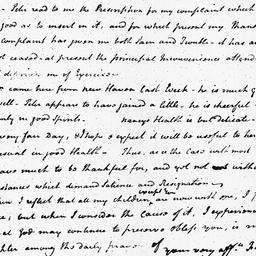 - John read to me the Prescription for my complaint which
good as to insert in it. and for which present my thanks
complaint has given me both Pain and Trouble - it has an
not ceased - at present the principal Inconvenience attend
me of Exercise
came here from new Haven Last Week - he is much g
well - John appears to have gained a little - he is cheerful -
in good Spirits. Nancys Health is but delicate -
very fair Day, & I hope & expect it will be useful to her
usual in good Health - Thus. are the Cases with most
have much to be thankful for, and yet not without
stances which demand Patience and Resignation
when I reflect that all my children, except one are now with me, I
but when I consider the cause of it, I experience
God may continue to preserve & bless you, is
among the daily prayers of your very affte